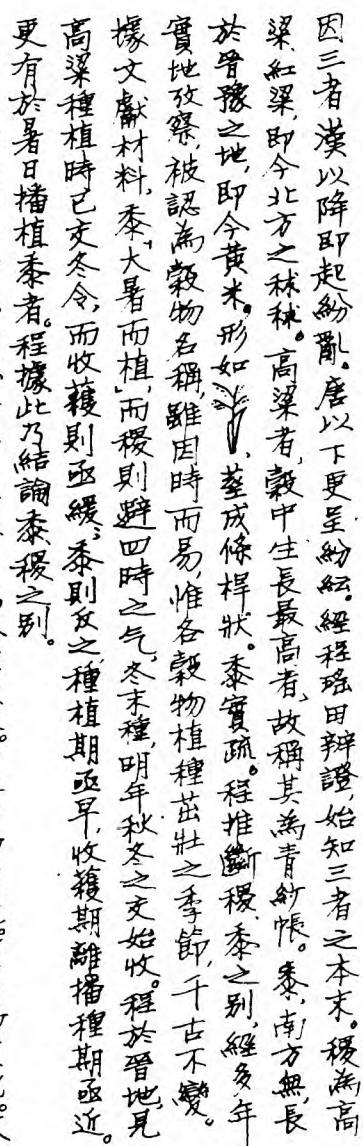 因三者漢以降即起紛亂。唐以下更呈紛紜。經程瑤田辨證,始知三者之本末。稷為高
粱,紅粱,即今北方之秫秫。高粱者,穀中生長最高者,故稱其為青紗帳。黍,南方無,長
於晉豫之地,即今黃米。形如、莖成條桿狀。黍實疏。程推斷稷、黍之別,經多年
實地攷察,被認為穀物名稱,雖因時而易,惟各穀物植種茁壯之季節,千古不變。
據文獻材料,黍「大暑而植」,而稷則避四時之气,冬末種,明年秋冬之交始收。程於晉地,見
高粱種植時已交冬令,而收穫則亟緩;黍則反之,種植期亟早,收穫期離播種期亟近。
更有於暑日播植黍者。程據此乃結論黍、稷之別。